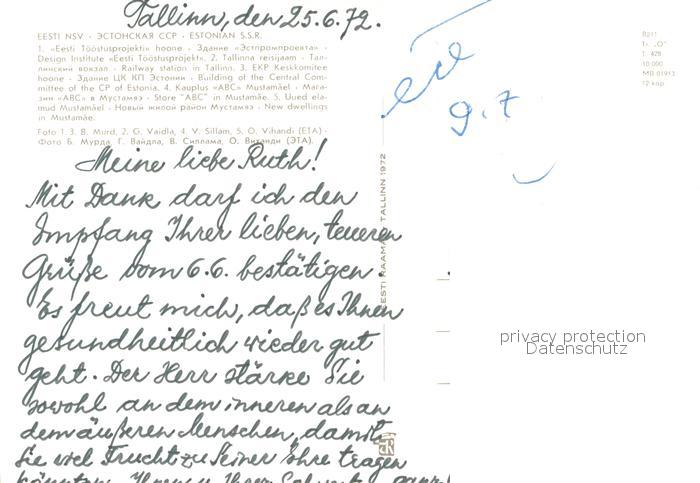 Tallinn, den 25.6.72.
EESTI NSV · ЭСТОНСКАЯ ССР · ESTONIAN S.S.R.
1. «Eesti Tööstusprojekti» hoone · Здание «Эстпромпроекта» ·
Design Institute «Eesti Tööstusprojekt». 2. Tallinna reisijaam · Тал-
линский вокзал · Railway station in Tallinn. 3. EKP Keskkomitee
hoone · Здание ЦК КП Эстонии · Building of the Central Com-
mittee of the CP of Estonia. 4. Kauplus «ABC» Mustamäel · Мага-
зин «ABC» в Мустамяэ · Store "ABC" in Mustamäe. 5. Uued ela-
mud Mustamäel · Новый жилой район Мустамяэ · New dwellings
in Mustamäe.
Foto 1. 3. B. Murd, 2. G. Vaidla, 4. V. Sillam, 5. O. Vihandi (ETA) ·
Фото Б. Мурда, Г. Вайдла, В. Силлама, О. Виханди (ЭТА).
Meine liebe Ruth!
Mit Dank darf ich den
Empfang Ihrer lieben, teueren
Grüße vom 6.6. bestätigen.
Es freut mich, daß es Ihnen
gesundheitlich wieder gut
geht. Der Herr stärke Sie
sowohl an dem inneren als an
dem äußeren Menschen, damit
Sie viel Frucht zu Seiner Ehre tragen
könnten. Ihnen u. Ihrer
EESTI RAAMAT TALLINN 1972
9.7
B211
Tr. „O"
T. 428
10 000
MB 01913
12 kop
privacy protection
Datenschutz